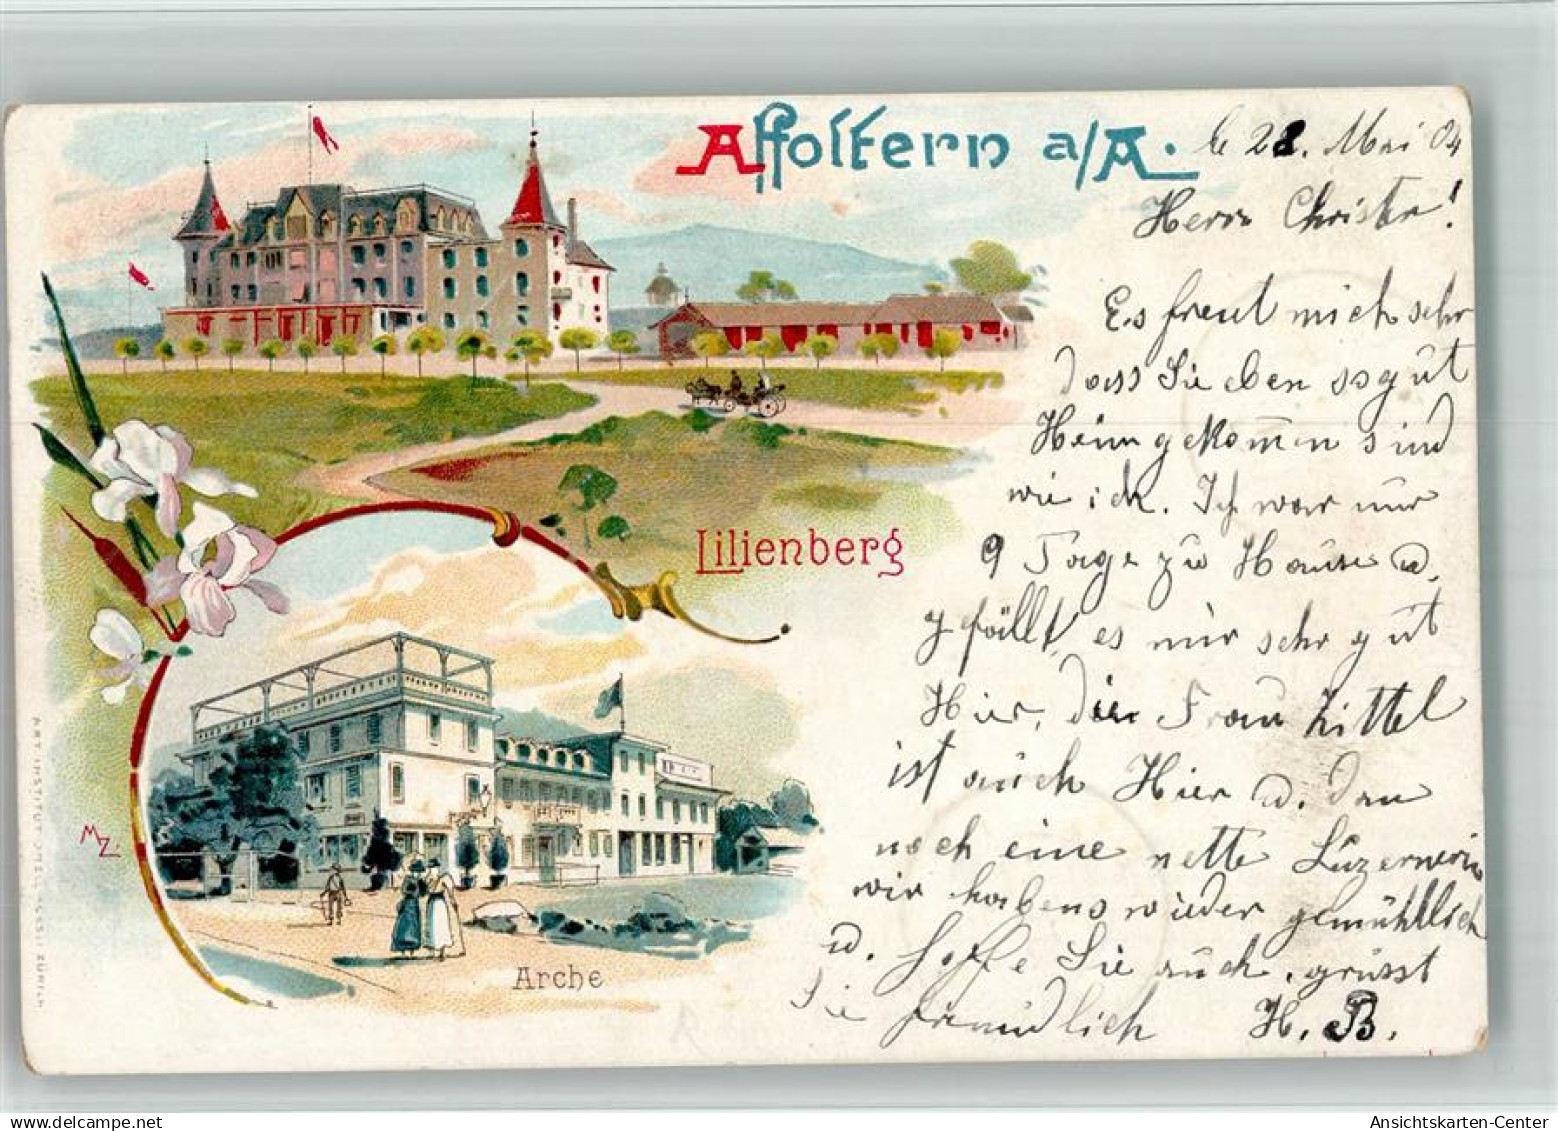 Affoltern a/A. le 28. Mai 04
Herr Christen!
Es freut mich sehr
dass Sie eben so gut
Heim gekommen sind
wie ich. Ich war nur
9 Tage zu Hause u.
gefällt es mir sehr gut
Hier, die Frau Zittel
ist auch Hier u. dan
noch eine nette Luzernerin
wir habens wieder gemühtlich
u. hoffe Sie auch. grüsst
Sie freundlich H. B.
Lilienberg
Arche
MZ.
ART. INSTITUT ORELL FÜSSLI ZÜRICH
Ansichtskarten-Center